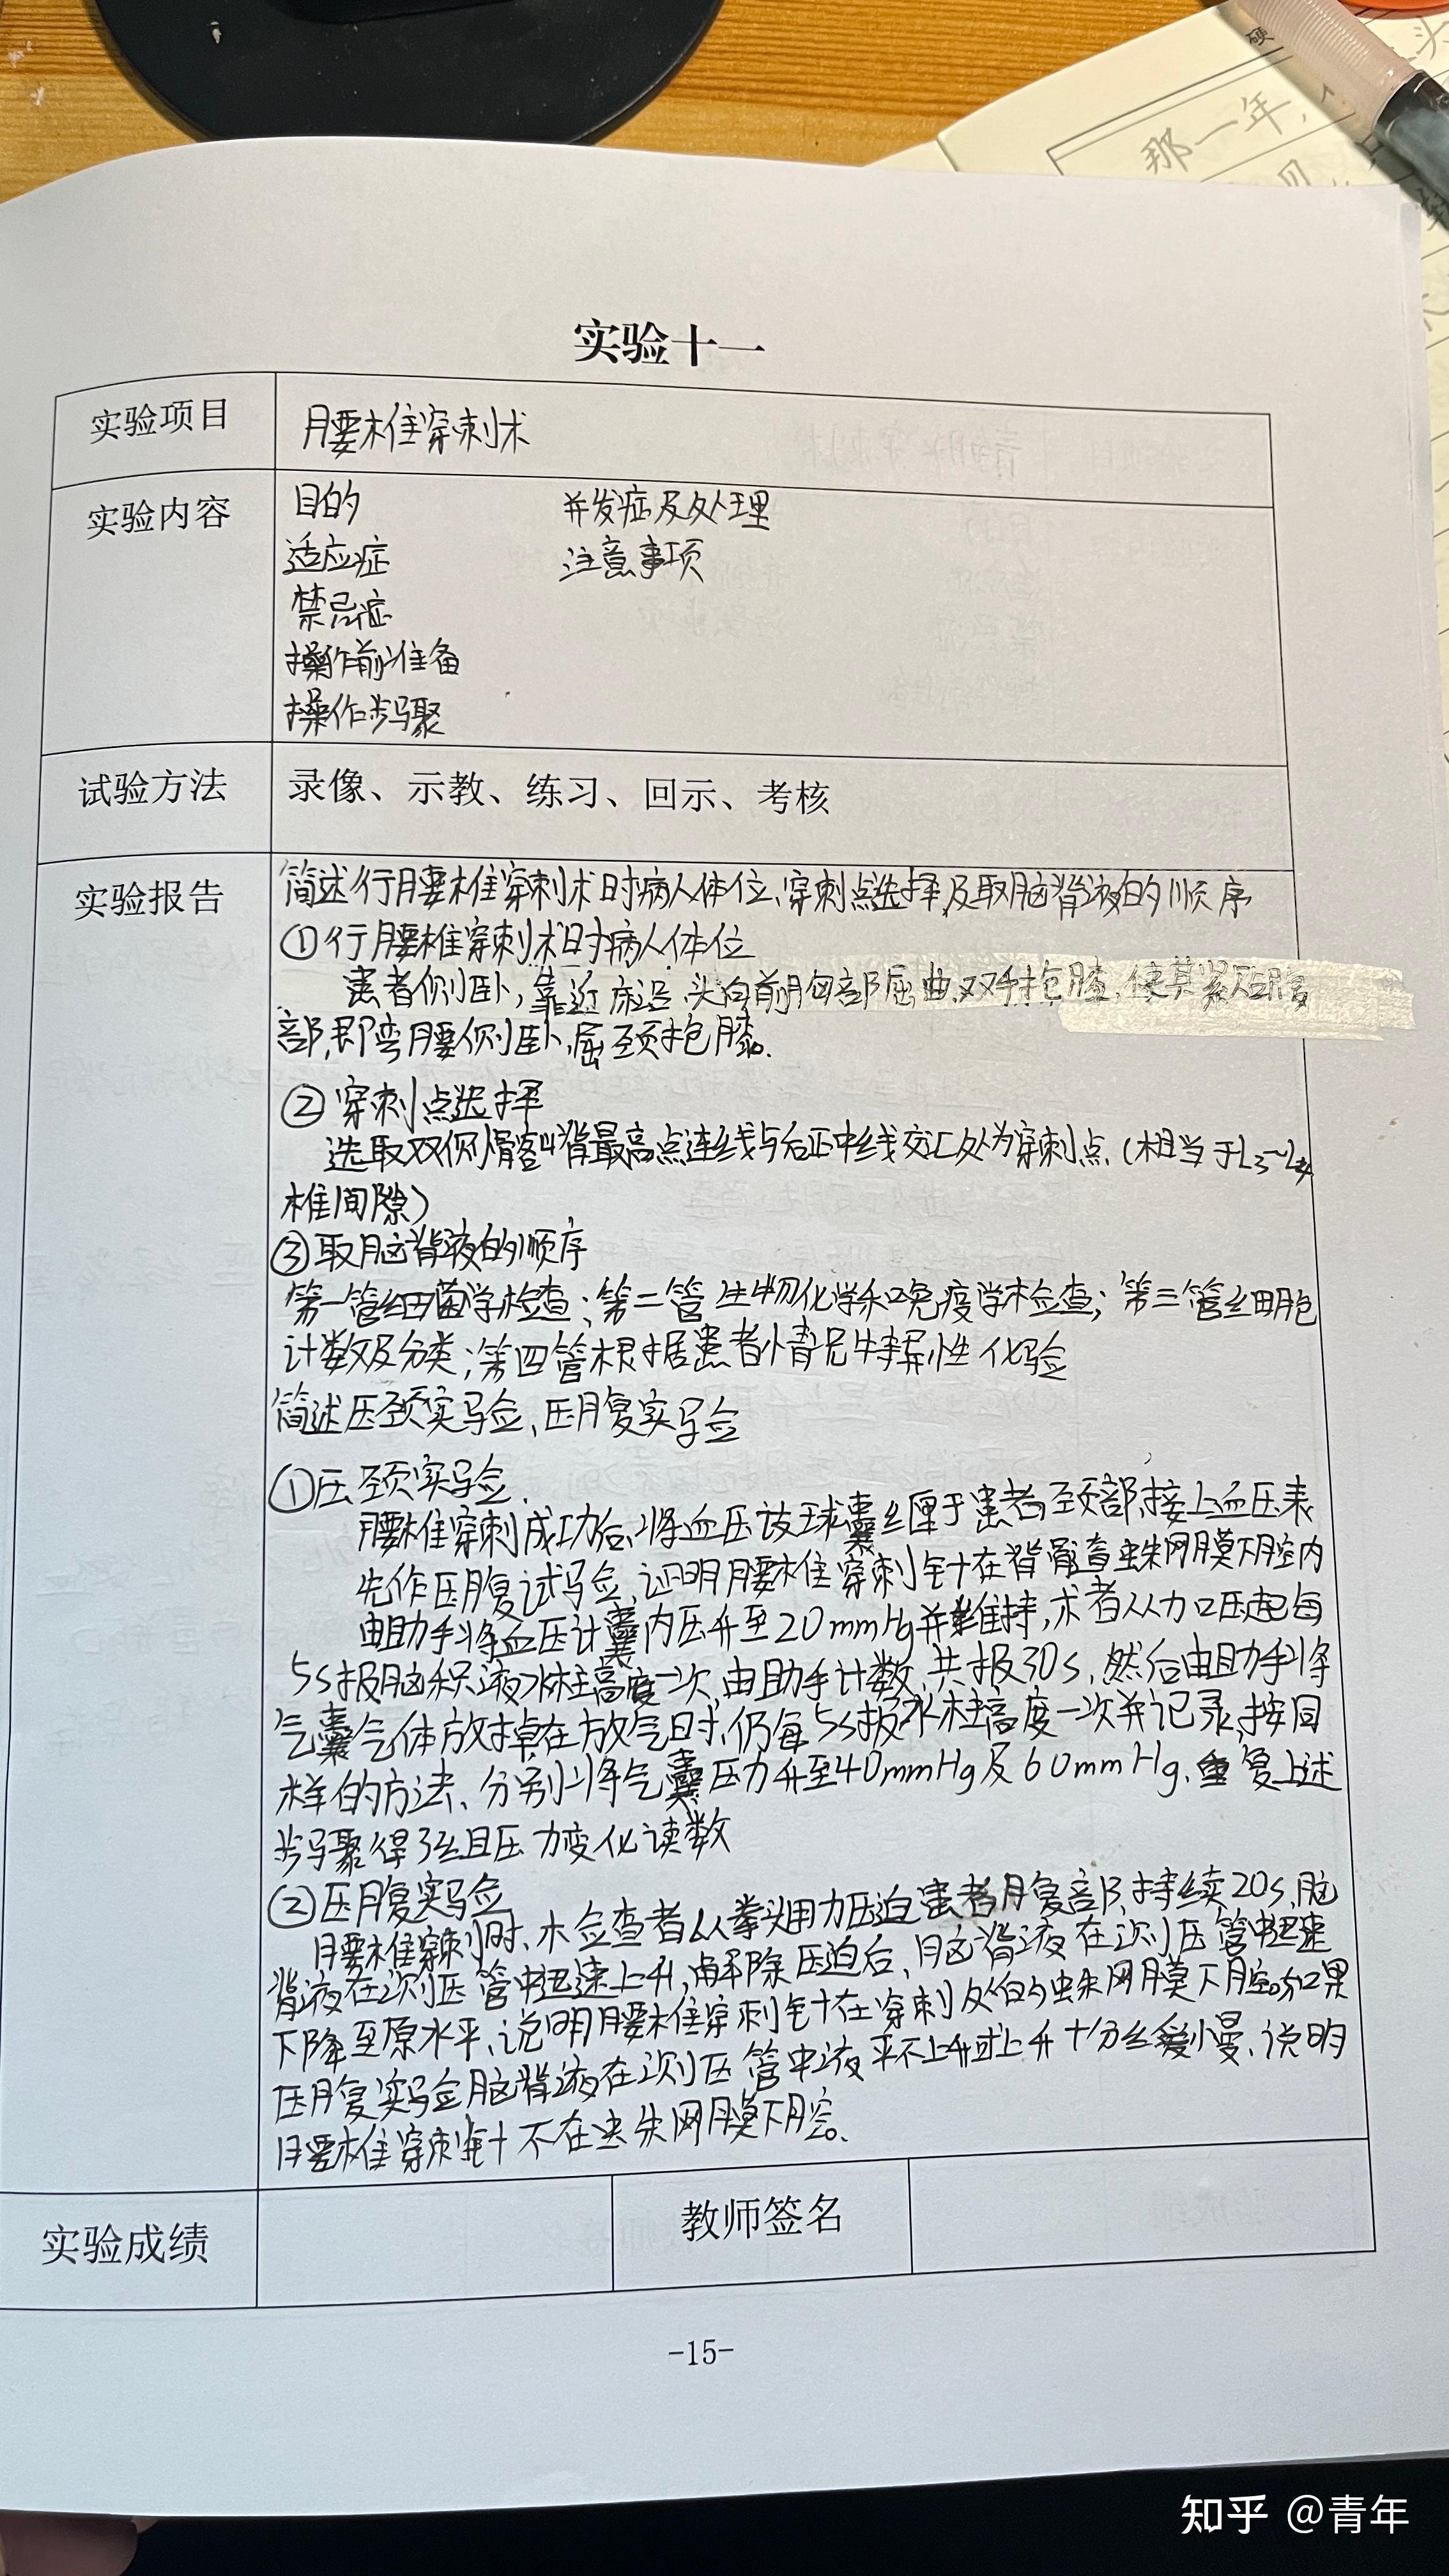 硬
头
那一年，
实验十一
实验项目
腰椎穿刺术
实验内容
目的 并发症及处理
适应症 注意事项
禁忌症
操作前准备
操作步骤
试验方法
录像、示教、练习、回示、考核
实验报告
简述行腰椎穿刺术时病人体位、穿刺点选择及取脑脊液的顺序
①行腰椎穿刺术时病人体位
患者侧卧，靠近床沿，头向前胸部屈曲，双手抱膝，使其紧贴腹
部，即弯腰侧卧，屈颈抱膝。
②穿刺点选择
选取双侧髂嵴最高点连线与后正中线交汇处为穿刺点（相当于L3~L4
椎间隙）
③取脑脊液的顺序
第一管细菌学检查；第二管生物化学和免疫学检查；第三管细胞
计数及分类；第四管根据患者情况特异性化验
简述压颈实验、压腹实验
①压颈实验
腰椎穿刺成功后，将血压设球囊缠于患者颈部，接上血压表
先作压腹试验，证明腰椎穿刺针在脊髓蛛网膜下腔内
由助手将血压计囊内压升至20mmHg并维持，术者从加压起每
5s报脑积液水柱高度一次，由助手计数，共报30s，然后由助手将
气囊气体放掉在放气时，仍每5s报水柱高度一次并记录，按同
样的方法、分别将气囊压力升至40mmHg及60mmHg，重复上述
步骤得3组压力变化读数
②压腹实验
腰椎穿刺时，检查者以拳头用力压迫患者腹部，持续20s，脑
脊液在测压管中迅速上升，解除压迫后，脑脊液在测压管中迅速
下降至原水平，说明腰椎穿刺针在穿刺处的蛛网膜下腔。如果
压腹实验脑脊液在测压管中液平不上升或上升十分缓慢，说明
腰椎穿刺针不在蛛网膜下腔。
实验成绩 教师签名
-15-
知乎 @青年